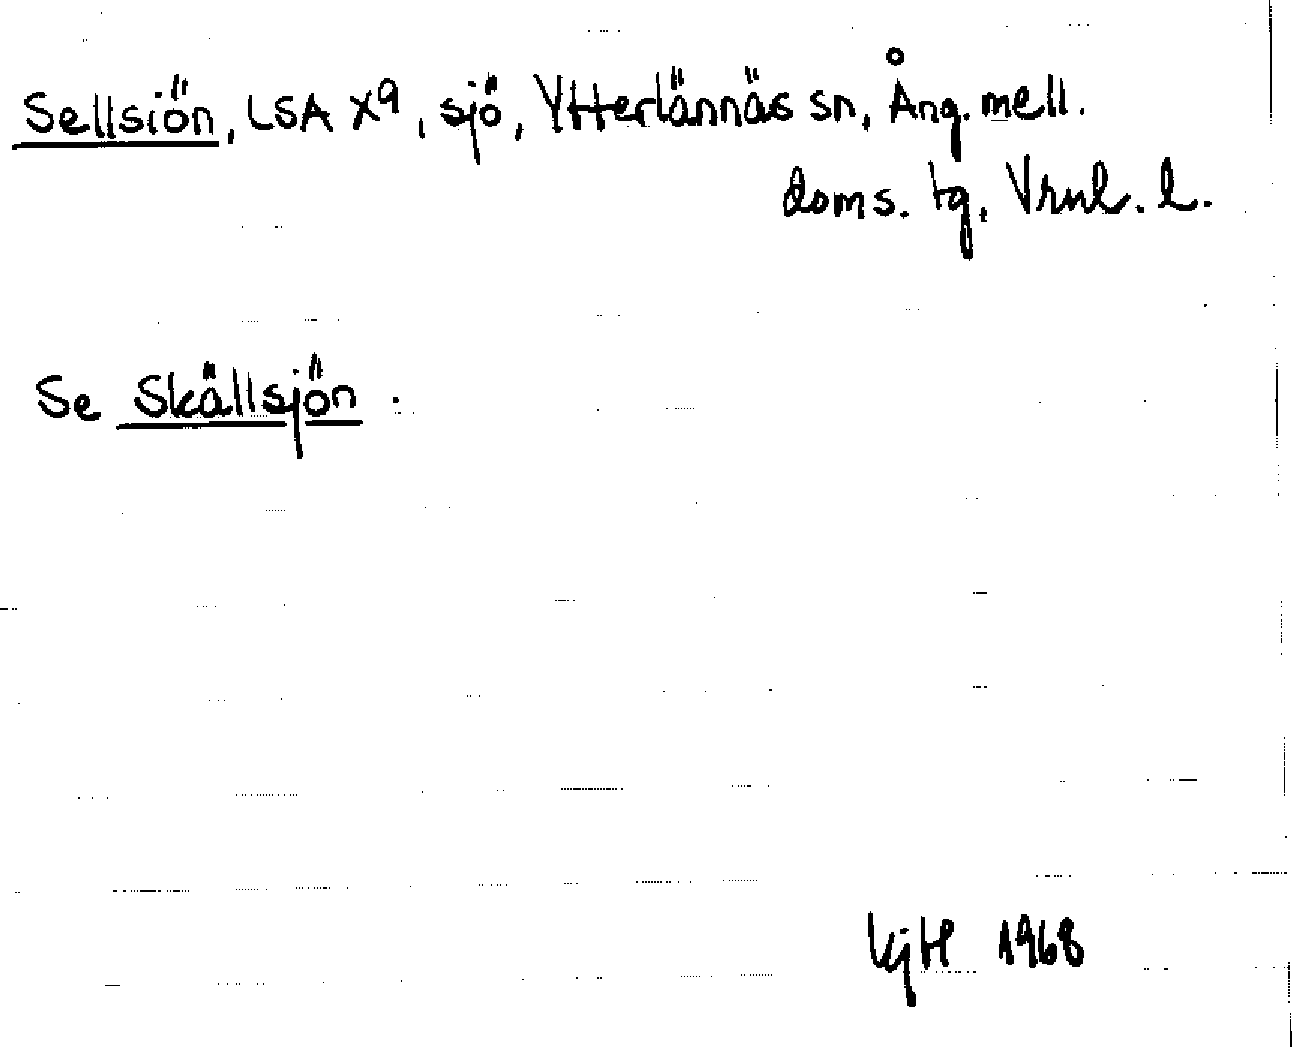 Sellsiön, LSA X9, sjö, Ytterlännäs sn, Ång. mell.
doms. tg, Vrnl. l.
Se Skällsjön.
KjH 1968